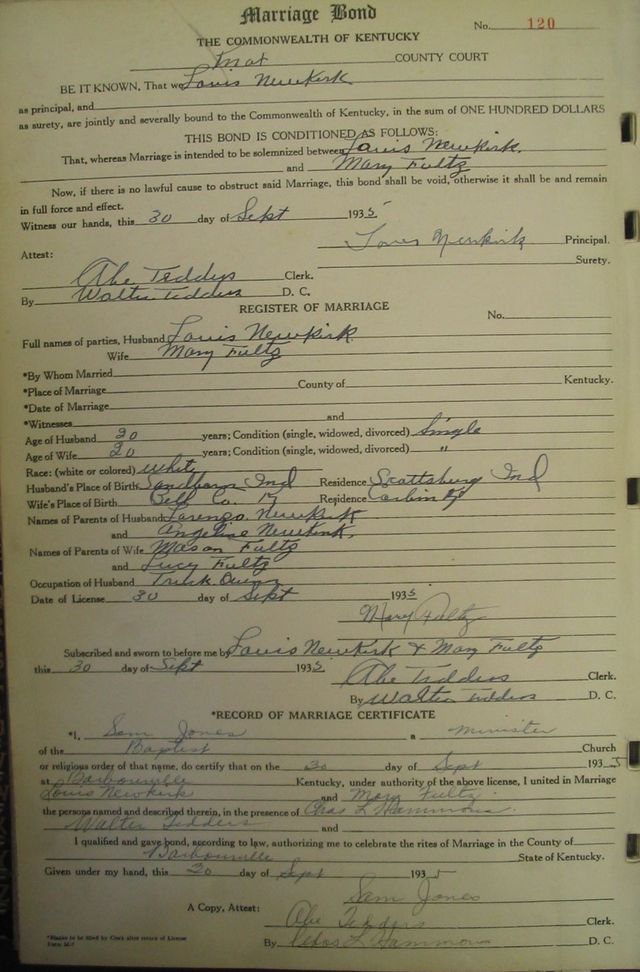 Marriage Bond
No. 120
THE COMMONWEALTH OF KENTUCKY
Knox COUNTY COURT
BE IT KNOWN, That we Louis Newkirk
as principal, and
as surety, are jointly and severally bound to the Commonwealth of Kentucky, in the sum of ONE HUNDRED DOLLARS
THIS BOND IS CONDITIONED AS FOLLOWS:
That, whereas Marriage is intended to be solemnized between Louis Newkirk.
and Mary Fultz
Now, if there is no lawful cause to obstruct said Marriage, this bond shall be void, otherwise it shall be and remain
in full force and effect.
Witness our hands, this 30 day of Sept 1935
Louis Newkirk Principal.
Attest: Surety.
Abe Tedders Clerk.
By Walter Tedders D. C.
REGISTER OF MARRIAGE
No.
Full names of parties, Husband Louis Newkirk
Wife Mary Fultz
*By Whom Married
*Place of Marriage County of Kentucky.
*Date of Marriage
*Witnesses and
Age of Husband years; Condition (single, widowed, divorced) Single
Age of Wife 20 years; Condition (single, widowed, divorced) "
Race: (white or colored) white
Husband's Place of Birth Sandborn Ind Residence Scottsburg Ind
Wife's Place of Birth Bell Co. Ky Residence Corbin Ky
Names of Parents of Husband Lorenzo Newkirk
and Angeline Newkirk.
Names of Parents of Wife Mason Fultz
and Lucy Fultz
Occupation of Husband Truck
Date of License 30 day of Sept 1935
Mary Fultz
Subscribed and sworn to before me by Louis Newkirk & Mary Fultz
this 30 day of Sept 1935
Abe Tedders Clerk.
By Walter Tedders D. C.
*RECORD OF MARRIAGE CERTIFICATE
*I, Sam Jones a minister
of the Baptist Church
or religious order of that name, do certify that on the 30 day of Sept 1935
at Barbourville Kentucky, under authority of the above license, I united in Marriage
Louis Newkirk and Mary Fultz
the persons named and described therein, in the presence of Chas L Hammons.
Walter Tedders and
I qualified and gave bond, according to law, authorizing me to celebrate the rites of Marriage in the County of
Barbourville State of Kentucky.
Given under my hand, this 30 day of Sept 1935
Sam Jones
A Copy, Attest: Abe Tedders Clerk.
By Chas L Hammons D. C.
*Blanks to be filled by Clerk after return of License